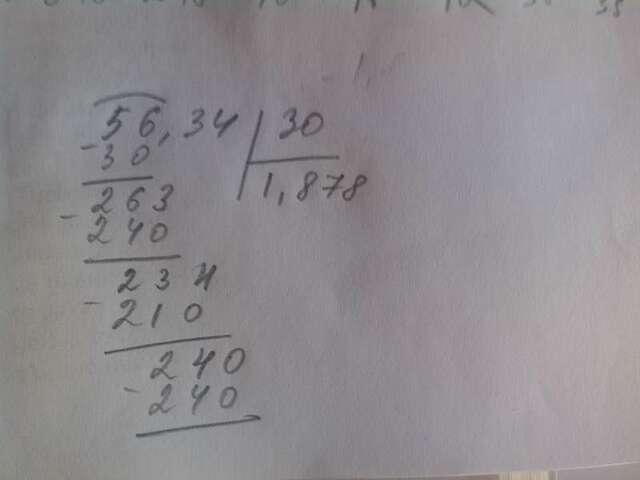 56,34 | 30
- 30 | 1,878
263
- 240
234
- 210
240
- 240